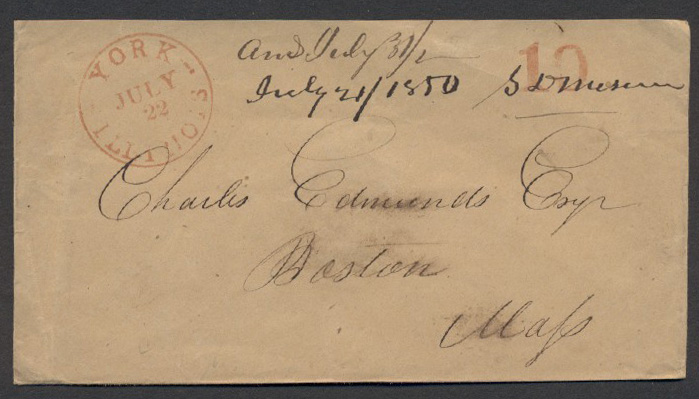 YORK
ILLINOIS
JULY
22
10
Ans July 31/2
July 21/1850
Charles Edmunds Esqr
Boston
Mass